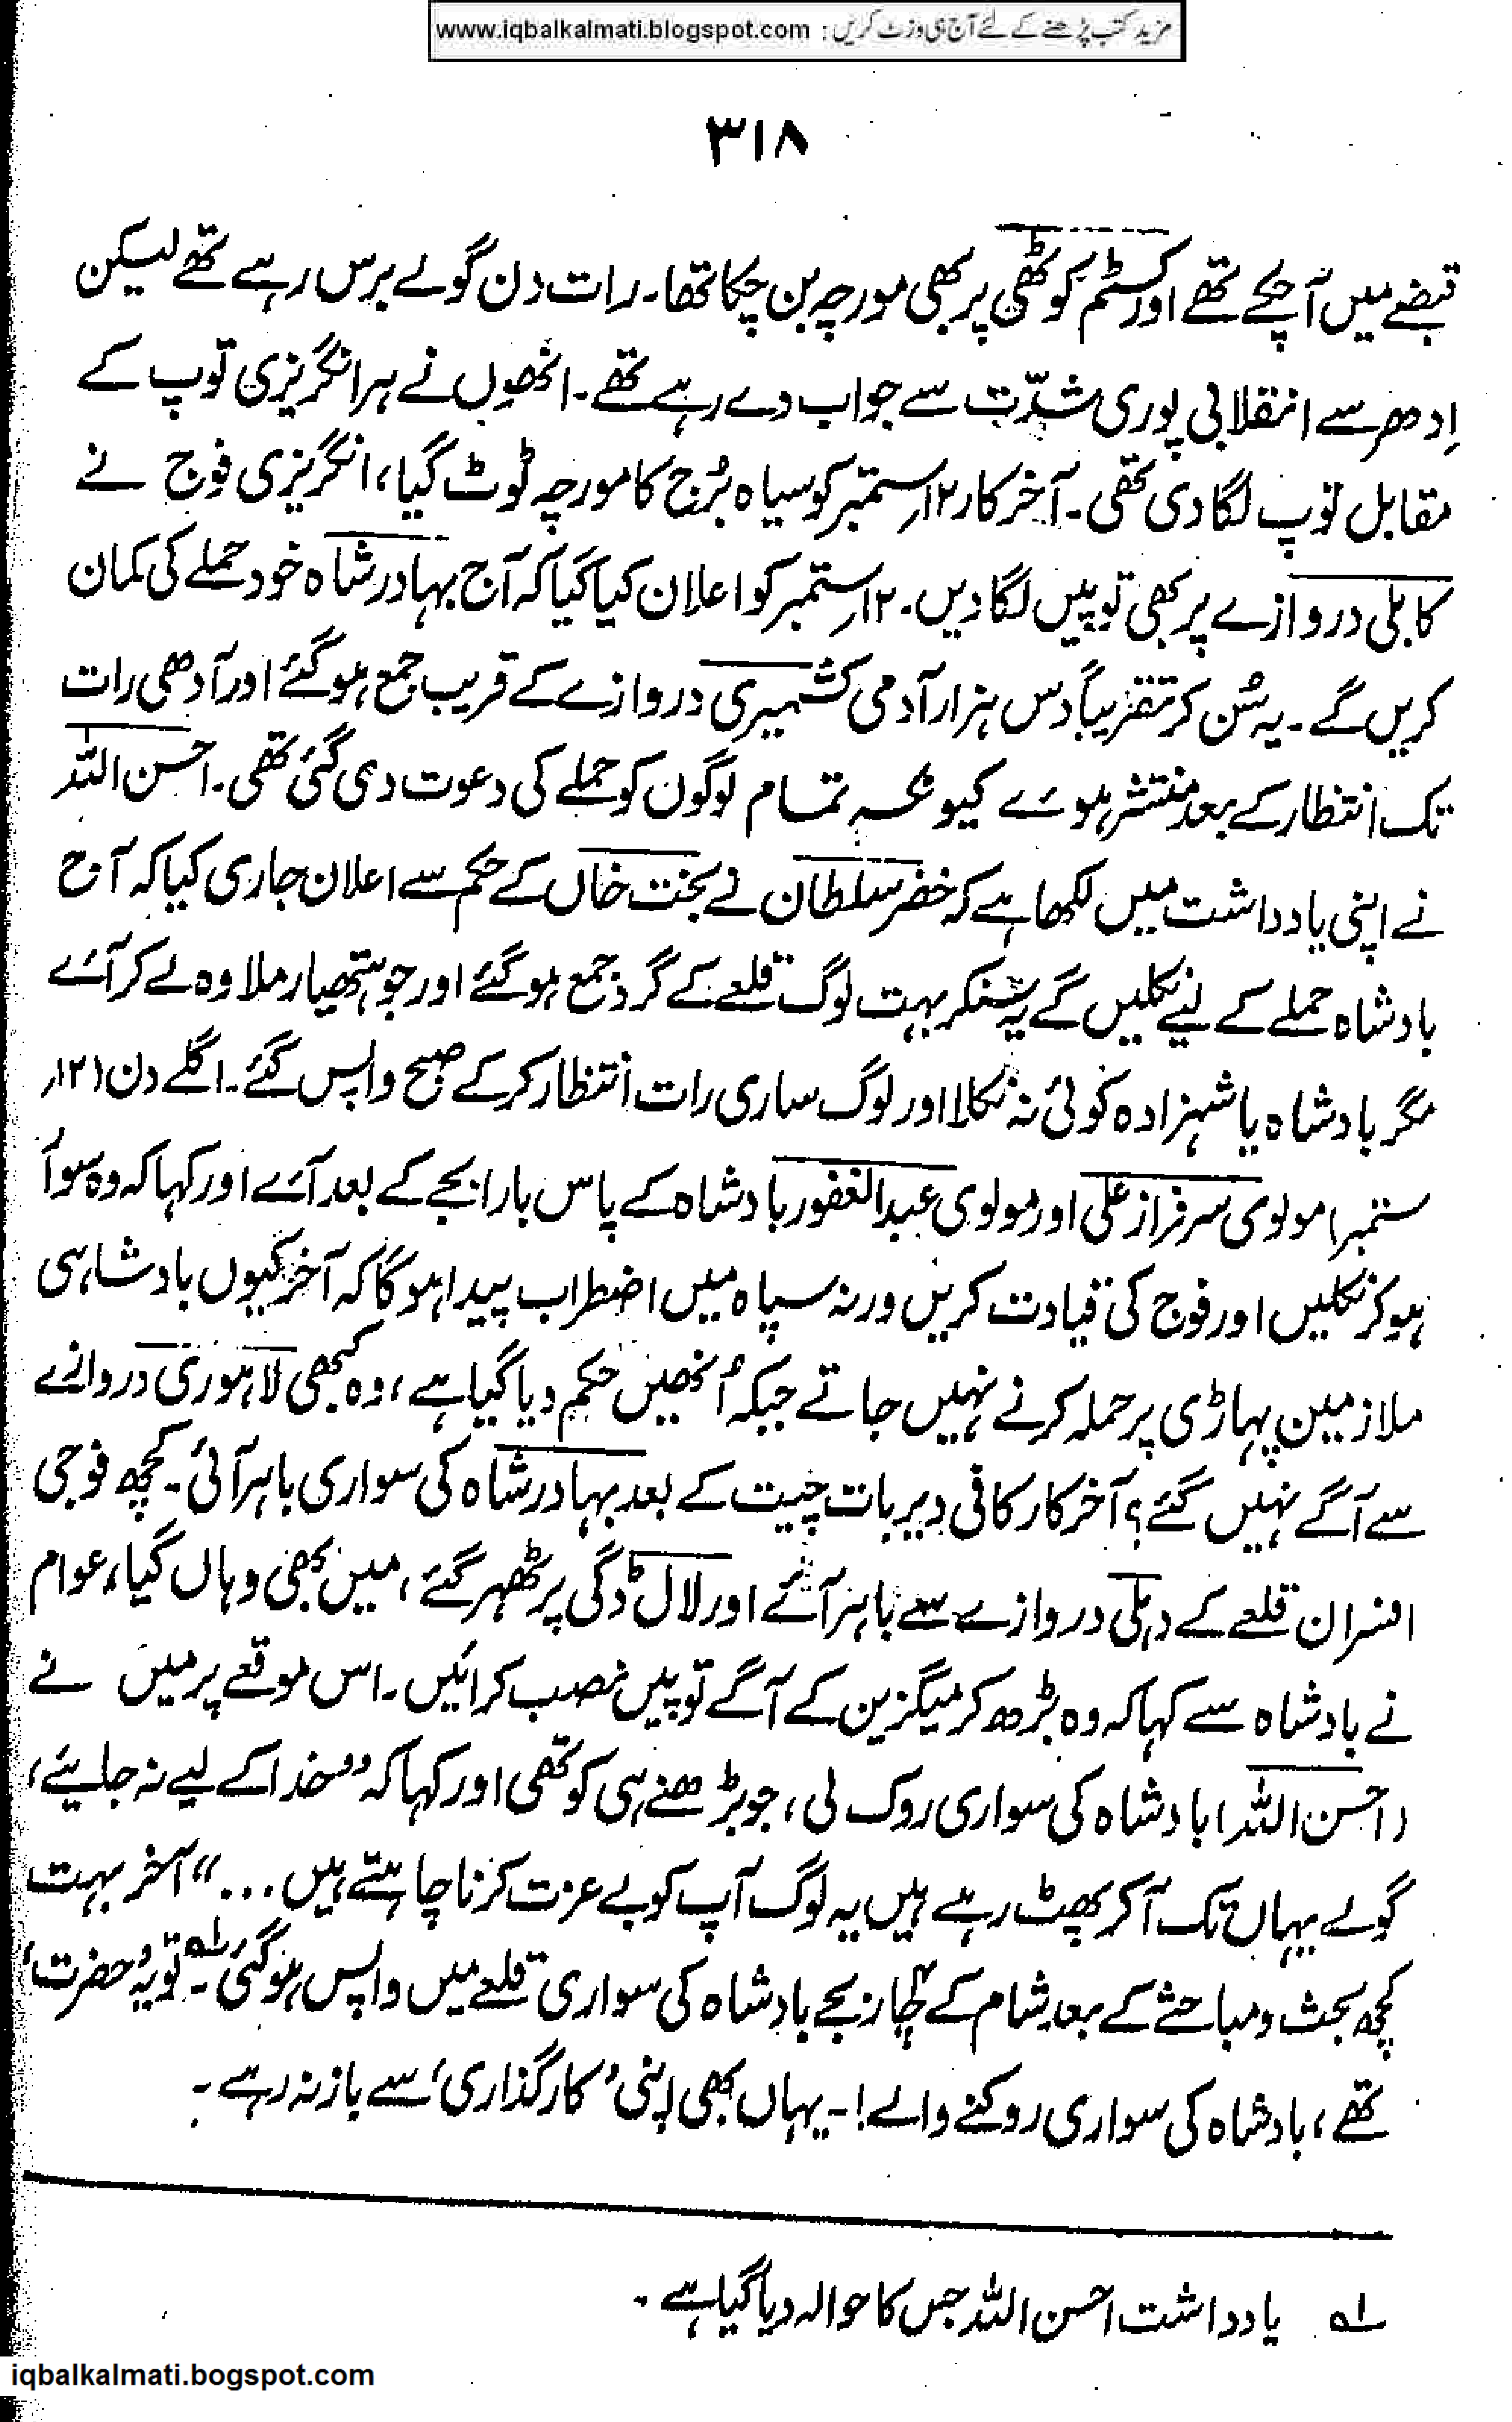 مزید کتب پڑھنے کے لئے آج ہی وزٹ کریں : www.iqbalkalmati.blogspot.com
۳۱۸
قبضے میں آچکے تھے اور کسٹم کوٹھی پر بھی مورچہ بن چکا تھا۔ رات دن گولے برس رہے تھے لیکن
اِدھر سے انقلابی پوری شدّت سے جواب دے رہے تھے۔ انھوں نے ہر انگریزی توپ کے
مقابل توپ لگا دی تھی۔ آخر کار ۱۲؍ستمبر کو سیاہ بُرج کا مورچہ ٹوٹ گیا، انگریزی فوج نے
کابلی دروازے پر بھی توپیں لگا دیں۔ ۱۲؍ستمبر کو اعلان کیا گیا کہ آج بہادر شاہ خود حملے کی کمان
کریں گے۔ یہ سُن کر تقریباً دس ہزار آدمی کشمیری دروازے کے قریب جمع ہو گئے اور آدھی رات
تک انتظار کے بعد منتشر ہوئے کیونکہ تمام لوگوں کو حملے کی دعوت دی گئی تھی۔ احسن اللہ
نے اپنی یادداشت میں لکھا ہے کہ خضر سلطان نے بخت خاں کے حکم سے اعلان جاری کیا کہ آج
بادشاہ حملے کے لیے نکلیں گے یہ سنکر بہت لوگ قلعے کے گرد جمع ہو گئے اور جو ہتھیار ملا وہ لے کر آئے
مگر بادشاہ یا شہزادہ کوئی نہ نکلا اور لوگ ساری رات انتظار کر کے صبح واپس گئے۔ اگلے دن (۱۲؍
ستمبر) مولوی سرفراز علی اور مولوی عبدالغفور بادشاہ کے پاس بارا بجے کے بعد آئے اور کہا کہ وہ سوار
ہو کر نکلیں اور فوج کی قیادت کریں ورنہ سپاہ میں اضطراب پیدا ہو گا کہ آخر کیوں بادشاہی
ملازمین پہاڑی پر حملہ کرنے نہیں جاتے جبکہ اُنھیں حکم دیا گیا ہے، وہ کبھی لاہوری دروازے
سے آگے نہیں گئے؟ آخر کار کافی دیر بات چیت کے بعد بہادر شاہ کی سواری باہر آئی۔ کچھ فوجی
افسران قلعے کے دہلی دروازے سے باہر آئے اور لال ڈگی پر ٹھہر گئے، میں بھی وہاں گیا، عوام
نے بادشاہ سے کہا کہ وہ بڑھ کر میگزین کے آگے توپیں نصب کرائیں۔ اس موقعے پر میں نے
(احسن اللہ) بادشاہ کی سواری روک لی، جو بڑھنے ہی کو تھی اور کہا کہ ”خدا کے لیے نہ جایئے،
گولے یہاں تک آ کر پھٹ رہے ہیں یہ لوگ آپ کو بے عزت کرنا چاہتے ہیں...“ آخر بہت
کچھ بحث و مباحثے کے بعد شام کے چار بجے بادشاہ کی سواری قلعے میں واپس ہو گئی۔ لہ تو یہ ’حضرت‘
تھے، بادشاہ کی سواری روکنے والے!۔ یہاں بھی اپنی ’کارگذاری‘ سے باز نہ رہے۔
لہ یادداشت احسن اللہ جس کا حوالہ دیا گیا ہے۔
iqbalkalmati.bogspot.com